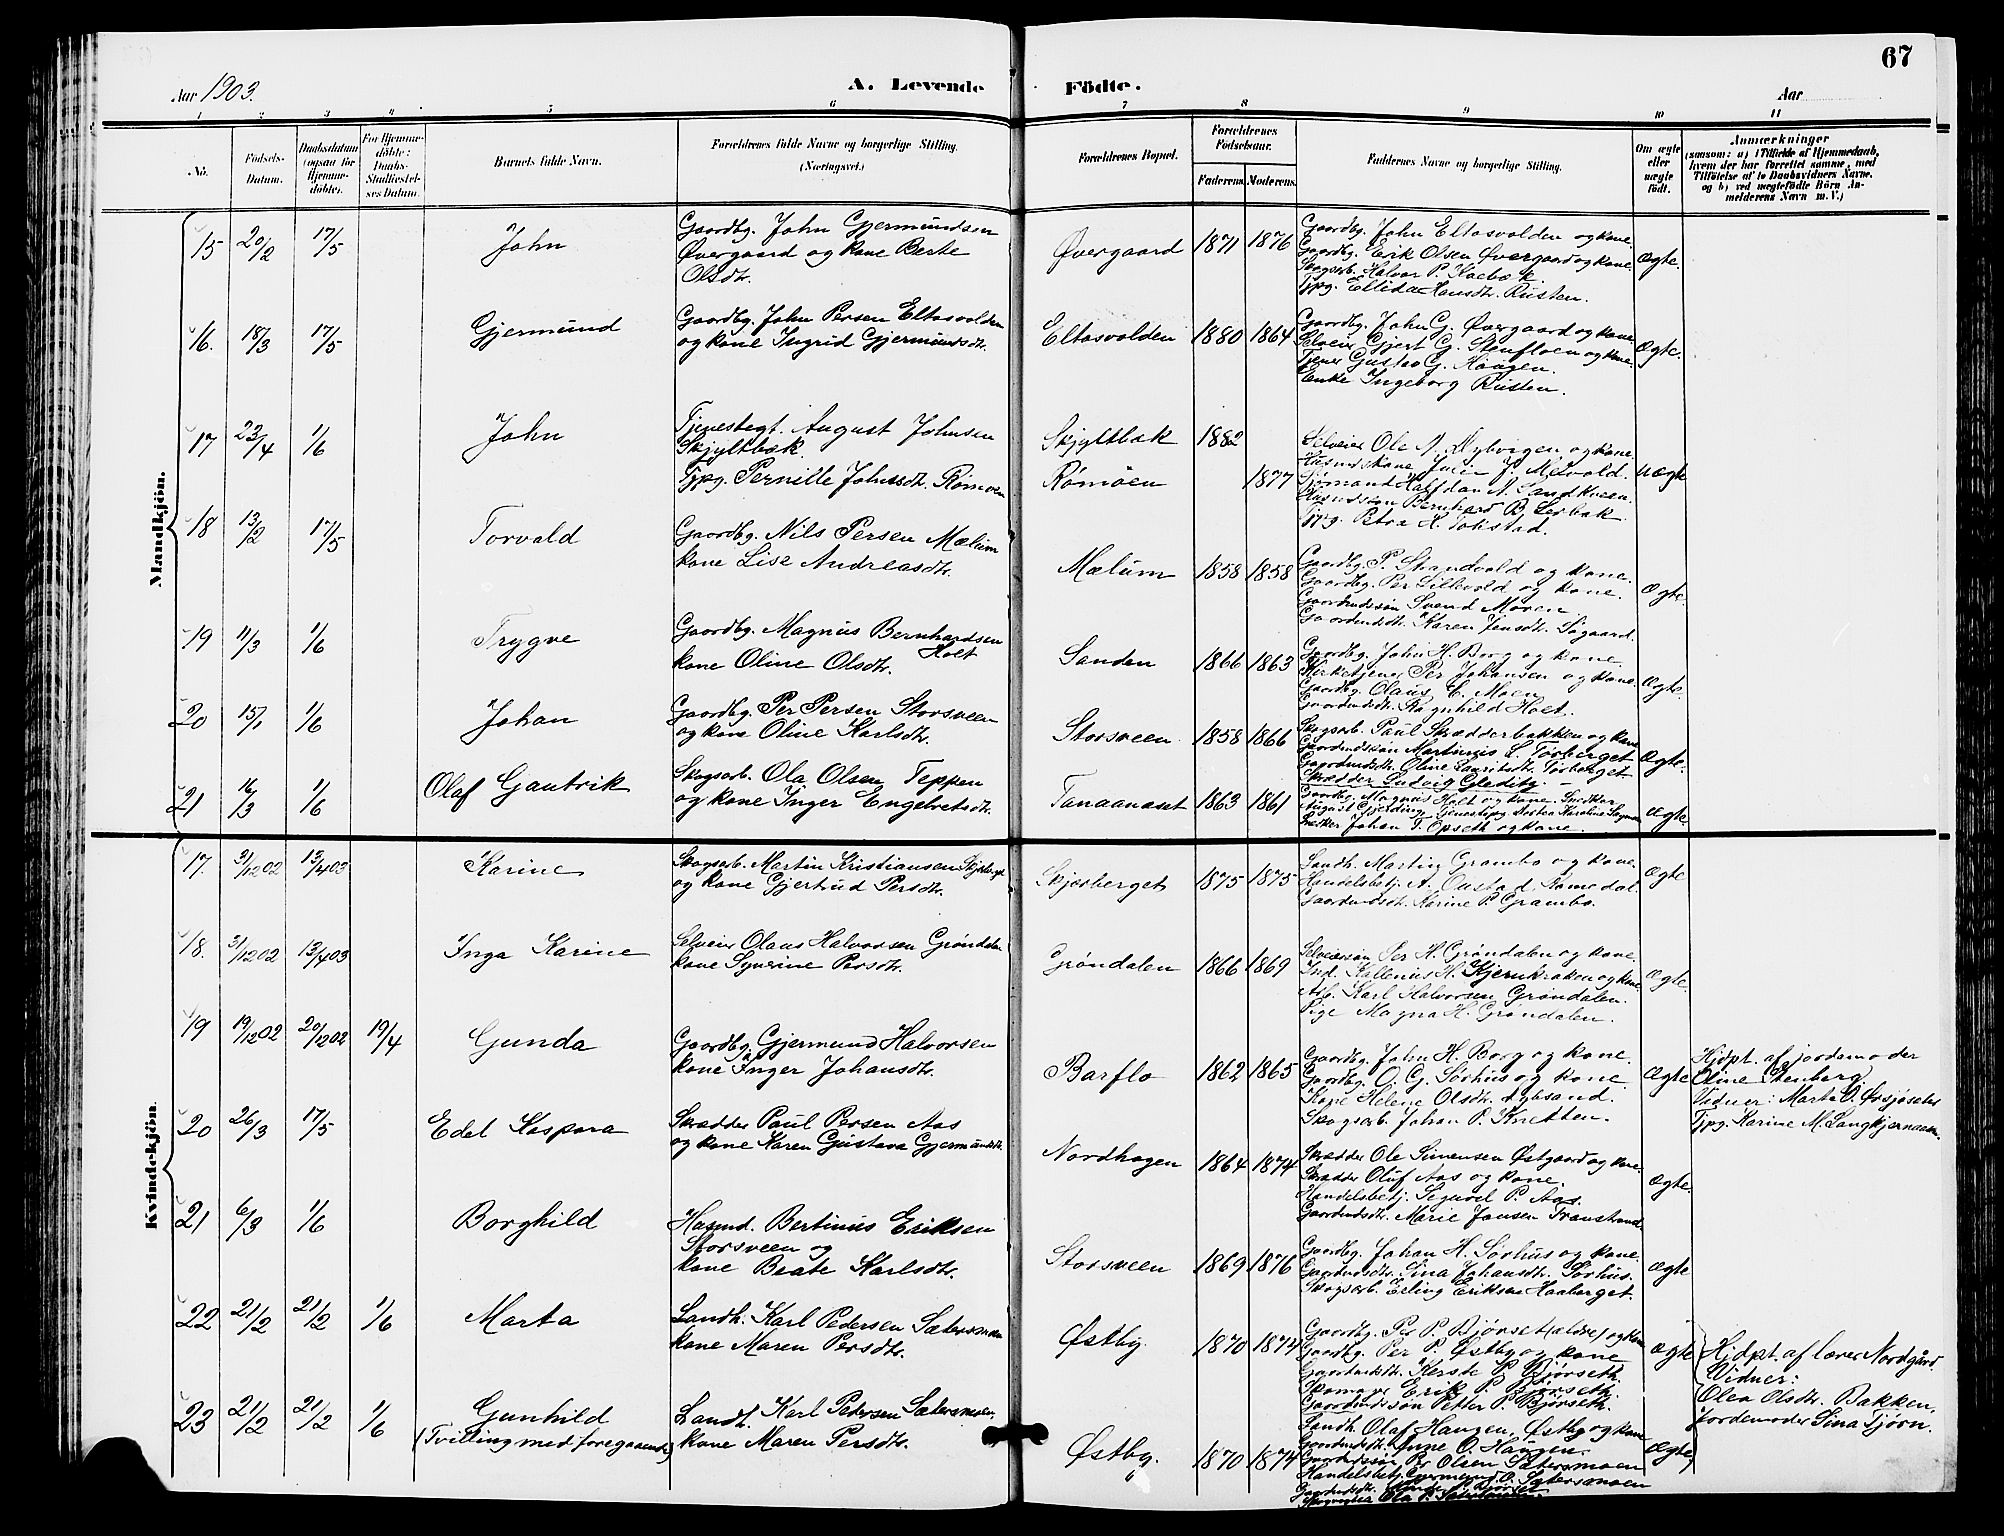 67
Aar 1903.
A. Levende Födte.
Aar
1 2 3 4 5 6 7 8 9 10 11
No.
Födsels-Datum.
Daabsdatum (ogsaa for Hjemmedöbte).
For Hjemmedöbte: Daabs-Stadfæstelses Datum.
Barnets fulde Navn.
Forældrenes fulde Navne og borgerlige Stilling. (Næringsvei.)
Forældrenes Bopæl.
Forældrenes Födselsaar.
Faderens. Moderens.
Faddernes Navne og borgerlige Stilling.
Om ægte eller uægte födt.
Anmærkninger
(saasom: a) i Tilfælde af Hjemmedaab, hvem der har forrettet samme, med Tilföielse af to Daabsvidners Navne. og b) ved uægtefödte Börn Anmelderens Navn m. V.)
Mandkjön.
15 20/2 17/5 John
Gaardbg. John Gjermundsen
Øvergaard og kone Berte
Olsdtr.
Øvergaard 1871 1876
Gaardbg. John Eltasvolden og kone.
Gaardbg. Erik Olsen Øvergaard og kone.
Skogsarb. Halvor P. Kaebæk
Tjpg. Ellida Hansdtr. Rusten.
Ægte.
16. 18/3 17/5 Gjermund
Gaardbg. John Persen Eltasvolden
og kone Ingrid Gjermundsdtr.
Eltasvolden 1880 1864
Gaardbg. John G. Øvergaard og kone
Selveier Gjert G. Stenfloen og kone.
Tjener Gustav G. Haugen.
Enke Ingeborg Rusten.
Ægte.
17 23/4 1/6 John
Tjenestegt. August Johnsen
Skjyltbæk.
Tjpg. Pernille Johnsdtr. Rømoen
Skjyltbæk 1882
Rømoen 1877
Selveier Ole A. Nybvigen og kone
Husmdskone Julie J. Melvold.
Sjømand Halfdan A. Sandkveen.
Husmdssøn Bernhard B. Lerbak.
Tjpg. Petra K. Tokstad.
Uægte
18 13/2 17/5 Torvald
Gaardbg. Nils Persen Mælum
kone Lise Andreasdtr.
Mælum 1858 1858
Gaardbg. P. Strandvold og kone.
Gaardbg. Per Lillevold og kone.
Gaardmdssøn Svend Moren
Gaardmdsdtr. Karen Jensdtr. Søgaard.
Ægte.
19 11/3 1/6 Trygve
Gaardbg. Magnus Bernhardsen
Holt
kone Oline Olsdtr.
Sanden 1866 1863
Gaardbg. John H. Borg og kone.
Kirketjener Per Johansen og kone.
Gaardbg. Olaus E. Moen
Gaardmdsdtr. Ragnhild Holt.
Ægte.
20 15/1 1/6 Johan
Gaardbg. Per Persen Storsveen
og kone Oline Karlsdtr.
Storsveen 1858 1866
Skogsarb. Paul Skrædderbakken og kone
Gaardmdssøn Martinus L. Torberget
Gaardmdsdtr. Oline Lauritsdtr. Torberget
Skrædder Ludvig Gleditz.
Ægte.
21 16/3 1/6 Olaf Gautvik
Skogsarb. Ola Olsen Teppen
og kone Inger Engebretsdtr.
Tanaanæset 1863 1861
Gaardbg. Magnus Holt og kone. Snedker
Snedker Johan T. Opseth og kone.
Ægte.
Kvindekjön.
17. 31/12 02 13/4 03 Karine
Skogsarb. Martin Kristiansen Skjærberget
og kone Gjertrud Persdtr.
Skjærberget 1875 1875
Landh. Martin Grambo og kone.
Handelsbetj. A. Onstad. Romedal.
Gaardmdsdtr. Karine P. Grambo.
Ægte
18. 31/12 02 13/4 03 Inga Karine
Selveier Olaus Halvorsen Grøndalen
kone Syverine Persdtr.
Grøndalen 1866 1869
Selveiersøn Per H. Grøndalen og kone.
Ind. Kallenius H. Kjernkroken og kone.
Arb. Karl Halvorsen Grøndalen.
Pige Magna H. Grøndalen.
Ægte.
19 19/12 02 20/12 02 19/4 Gunda
Gaardbg. Gjermund Halvorsen
kone Inger Johansdtr.
Barflo 1862 1865
Gaardbg. John H. Borg og kone.
Gaardbg. O. G. Sørhus og kone.
Kone Helene Olsdtr. Nybsand.
Skogsarb. Johan P. Knetten.
Ægte
Hjdpt. af jordemoder
Oline Stenberg
Vidner: Marte O. Ørsjøsæter
Tjpg. Karine M. Langkjernaasen.
20 26/3 17/5 Edel Kaspara
Skrædder Paul Persen Aas
og kone Karen Gustava Gjermundsdtr.
Nordhagen 1864 1874
Skrædder Ole Simensen Østgaard og kone.
Skrædder Oluf Aas og kone.
Handelsbetj. Sigurd P. Aas.
Gaardmdsdtr. Marie Jansen Transtrand.
Ægte.
21 6/3 1/6 Borghild
Husmd. Bertinus Eriksen
Storsveen og
kone Beate Karlsdtr.
Storsveen 1869 1876
Gaardbg. Johan H. Sørhus og kone
Gaardmdsdtr. Sina Johansdtr. Sørhus.
Skogsarb. Erling Eriksen Haaberget.
Ægte
22 21/2 21/2 1/6 Marta
Landh. Karl Pedersen Sætersmoen
kone Maren Persdtr.
Østby 1870 1874
Gaardbg. Per P. Bjørset (aldre) og kone
Gaardbg. Per P. Østby og kone
Gaardmdsdtr. Kerste P. Bjørseth.
Skomager Erik P. Bjørseth.
Gaardmdssøn Petter P. Bjørseth.
Ægte
Hjdpt. af lærer Nordgård
Vidner:
Olea Olsdtr. Bakken,
Jordemoder Sina Tjørn.
23 21/2 21/2 1/6 Gunhild
(Tvilling med foregaaende)
Landh. Karl Pedersen Sætersmoen,
kone Maren Persdtr.
Østby. 1870 1874
Landh. Olaf Haugen, Østby og kone
Gaardmdsdtr. Anne O. Haugen.
Gaardmdssøn Per Olsen Sætersmoen
Handelsbetj. Gjermund O. Sætersmoen
Ægte